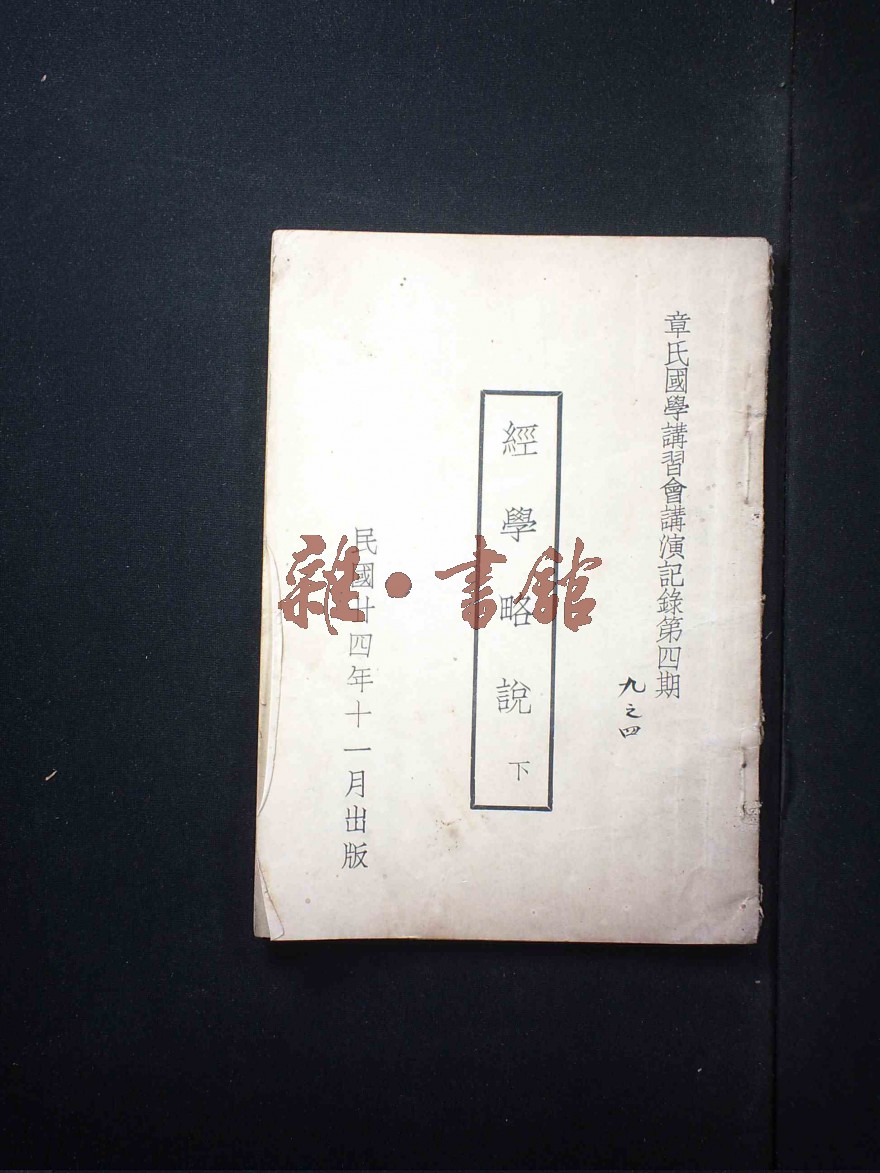 章氏國學講習會講演記錄第四期
九之四
經學略說 下
民國廿四年十一月出版
雜·書館